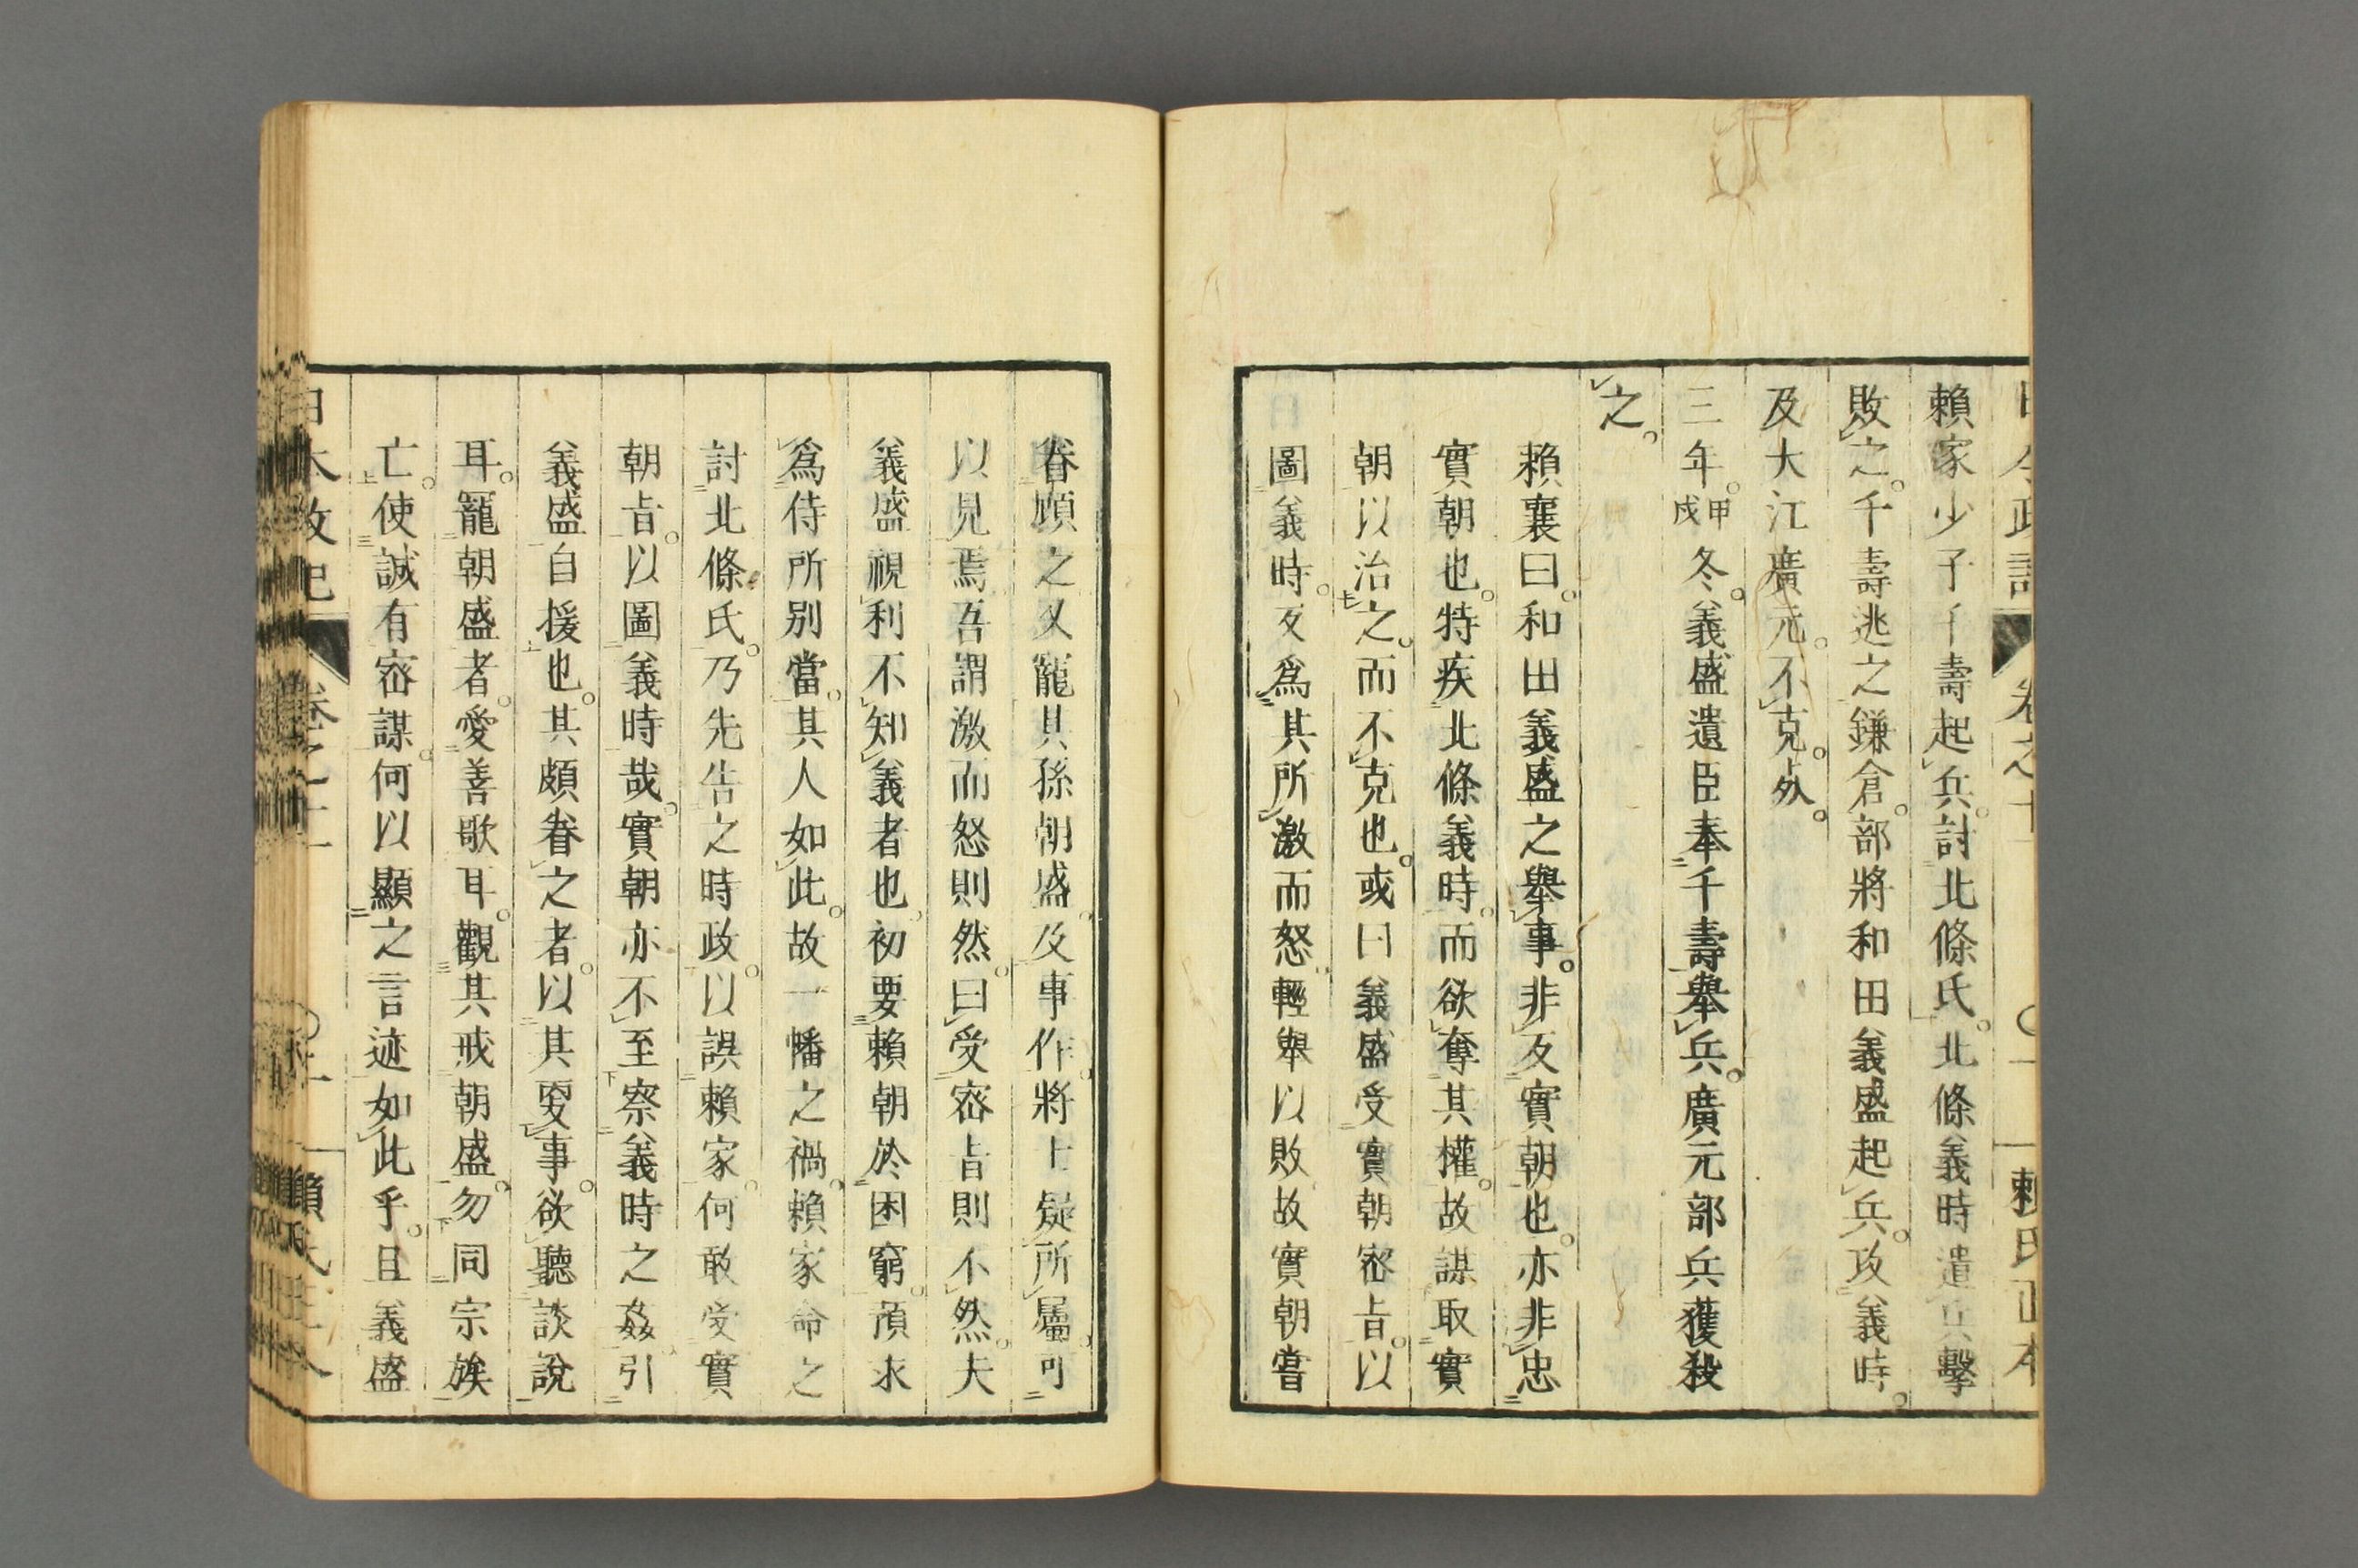 賴家少子千壽起兵。討北條氏。北條義時遣兵擊
敗之。千壽逃之鎌倉。部將和田義盛起兵。攻義時。
及大江廣元。不克。死。
三年。甲戌冬。義盛遺臣奉千壽舉兵。廣元部兵獲殺
之。
賴襄曰。和田義盛之舉事。非反實朝也。亦非忠
實朝也。特疾北條義時。而欲奪其權。故謀取實
朝以治之。而不克也。或曰義盛受實朝密旨。以
圖義時。反爲其所激而怒。輕舉以敗。故實朝嘗
眷顧之。又寵其孫朝盛。及事作。將士疑所屬。可
以見焉。吾謂激而怒則然。曰受密旨則不然。夫
義盛視利不知義者也。初要賴朝於困窮。預求
爲侍所別當。其人如此。故一幡之禍。賴家命之
討北條氏。乃先告之時政。以誤賴家。何敢受實
朝旨。以圖義時哉。實朝亦不至察義時之姦。引
義盛自援也。其頗眷之者。以其更事。欲聽談說
耳。寵朝盛者。愛善歌耳。觀其戒朝盛。勿同宗族
亡。使誠有密謀。何以顯之言迹如此乎。且義盛
日本政記 卷之十一